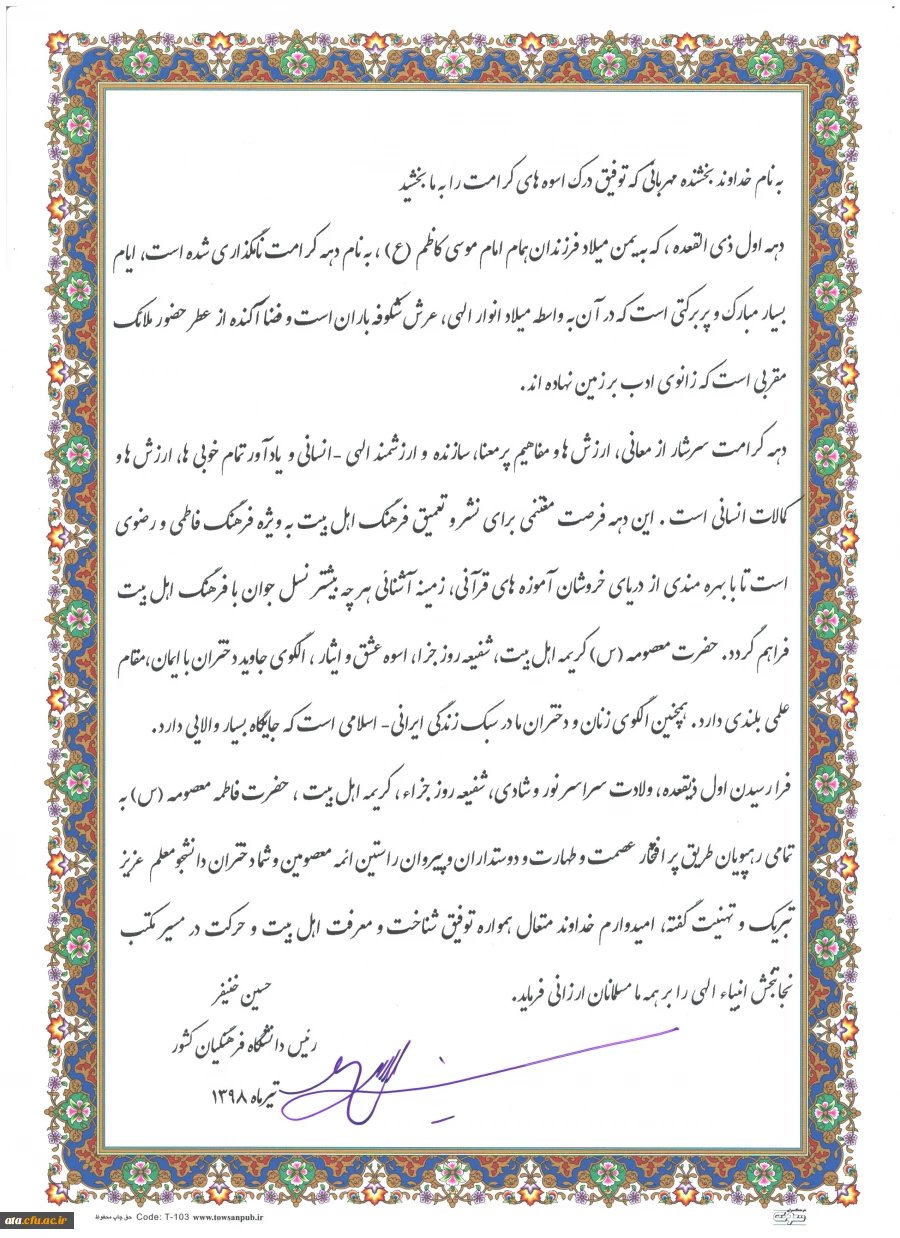 به نام خداوند بخشنده مهربانی که توفیق درک اسوه های کرامت را به ما بخشید
دهه اول ذی القعده ، که به یمن میلاد فرزندان همام امام موسی کاظم (ع) ، به نام دهه کرامت نامگذاری شده است، ایام
بسیار مبارک و پر برکتی است که در آن به واسطه میلاد انوار الهی، عرش شکوفه باران است و فضا آکنده از عطر حضور ملائک
مقربی است که زانوی ادب بر زمین نهاده اند.
دهه کرامت سرشار از معانی، ارزش ها و مفاهیم پرمعنا، سازنده و ارزشمند الهی -انسانی و یادآور تمام خوبی ها، ارزش ها و
کمالات انسانی است . این دهه فرصت مغتنمی برای نشر و تعمیق فرهنگ اهل بیت به ویژه فرهنگ فاطمی و رضوی
است تا با بهره مندی از دریای خروشان آموزه های قرآنی، زمینه آشنائی هر چه بیشتر نسل جوان با فرهنگ اهل بیت
فراهم گردد. حضرت معصومه (س) کریمه اهل بیت، شفیعه روز جزا، اسوه عشق و ایثار ، الگوی جاوید دختران با ایمان،مقام
علمی بلندی دارد. همچنین الگوی زنان و دختران ما در سبک زندگی ایرانی- اسلامی است که جایگاه بسیار والایی دارد.
فرا رسیدن اول ذیقعده، ولادت سراسر نور و شادی، شفیعه روز جزاء ، کریمه اهل بیت ، حضرت فاطمه معصومه (س) به
تمامی رهپویان طریق پر افتخار عصمت و طهارت و دوستداران و پیروان راستین ائمه معصومین و شما دختران دانشجو معلم عزیز
تبریک و تهنیت گفته، امیدوارم خداوند متعال همواره توفیق شناخت و معرفت اهل بیت و حرکت در مسیر مکتب
نجاتبخش انبیاء الهی را بر همه ما مسلمانان ارزانی فرماید.
حسین خنیفر
رئیس دانشگاه فرهنگیان کشور
تیرماه ۱۳۹۸
حق چاپ محفوظ Code: T-103 www.towsanpub.ir
ata.cfu.ac.ir